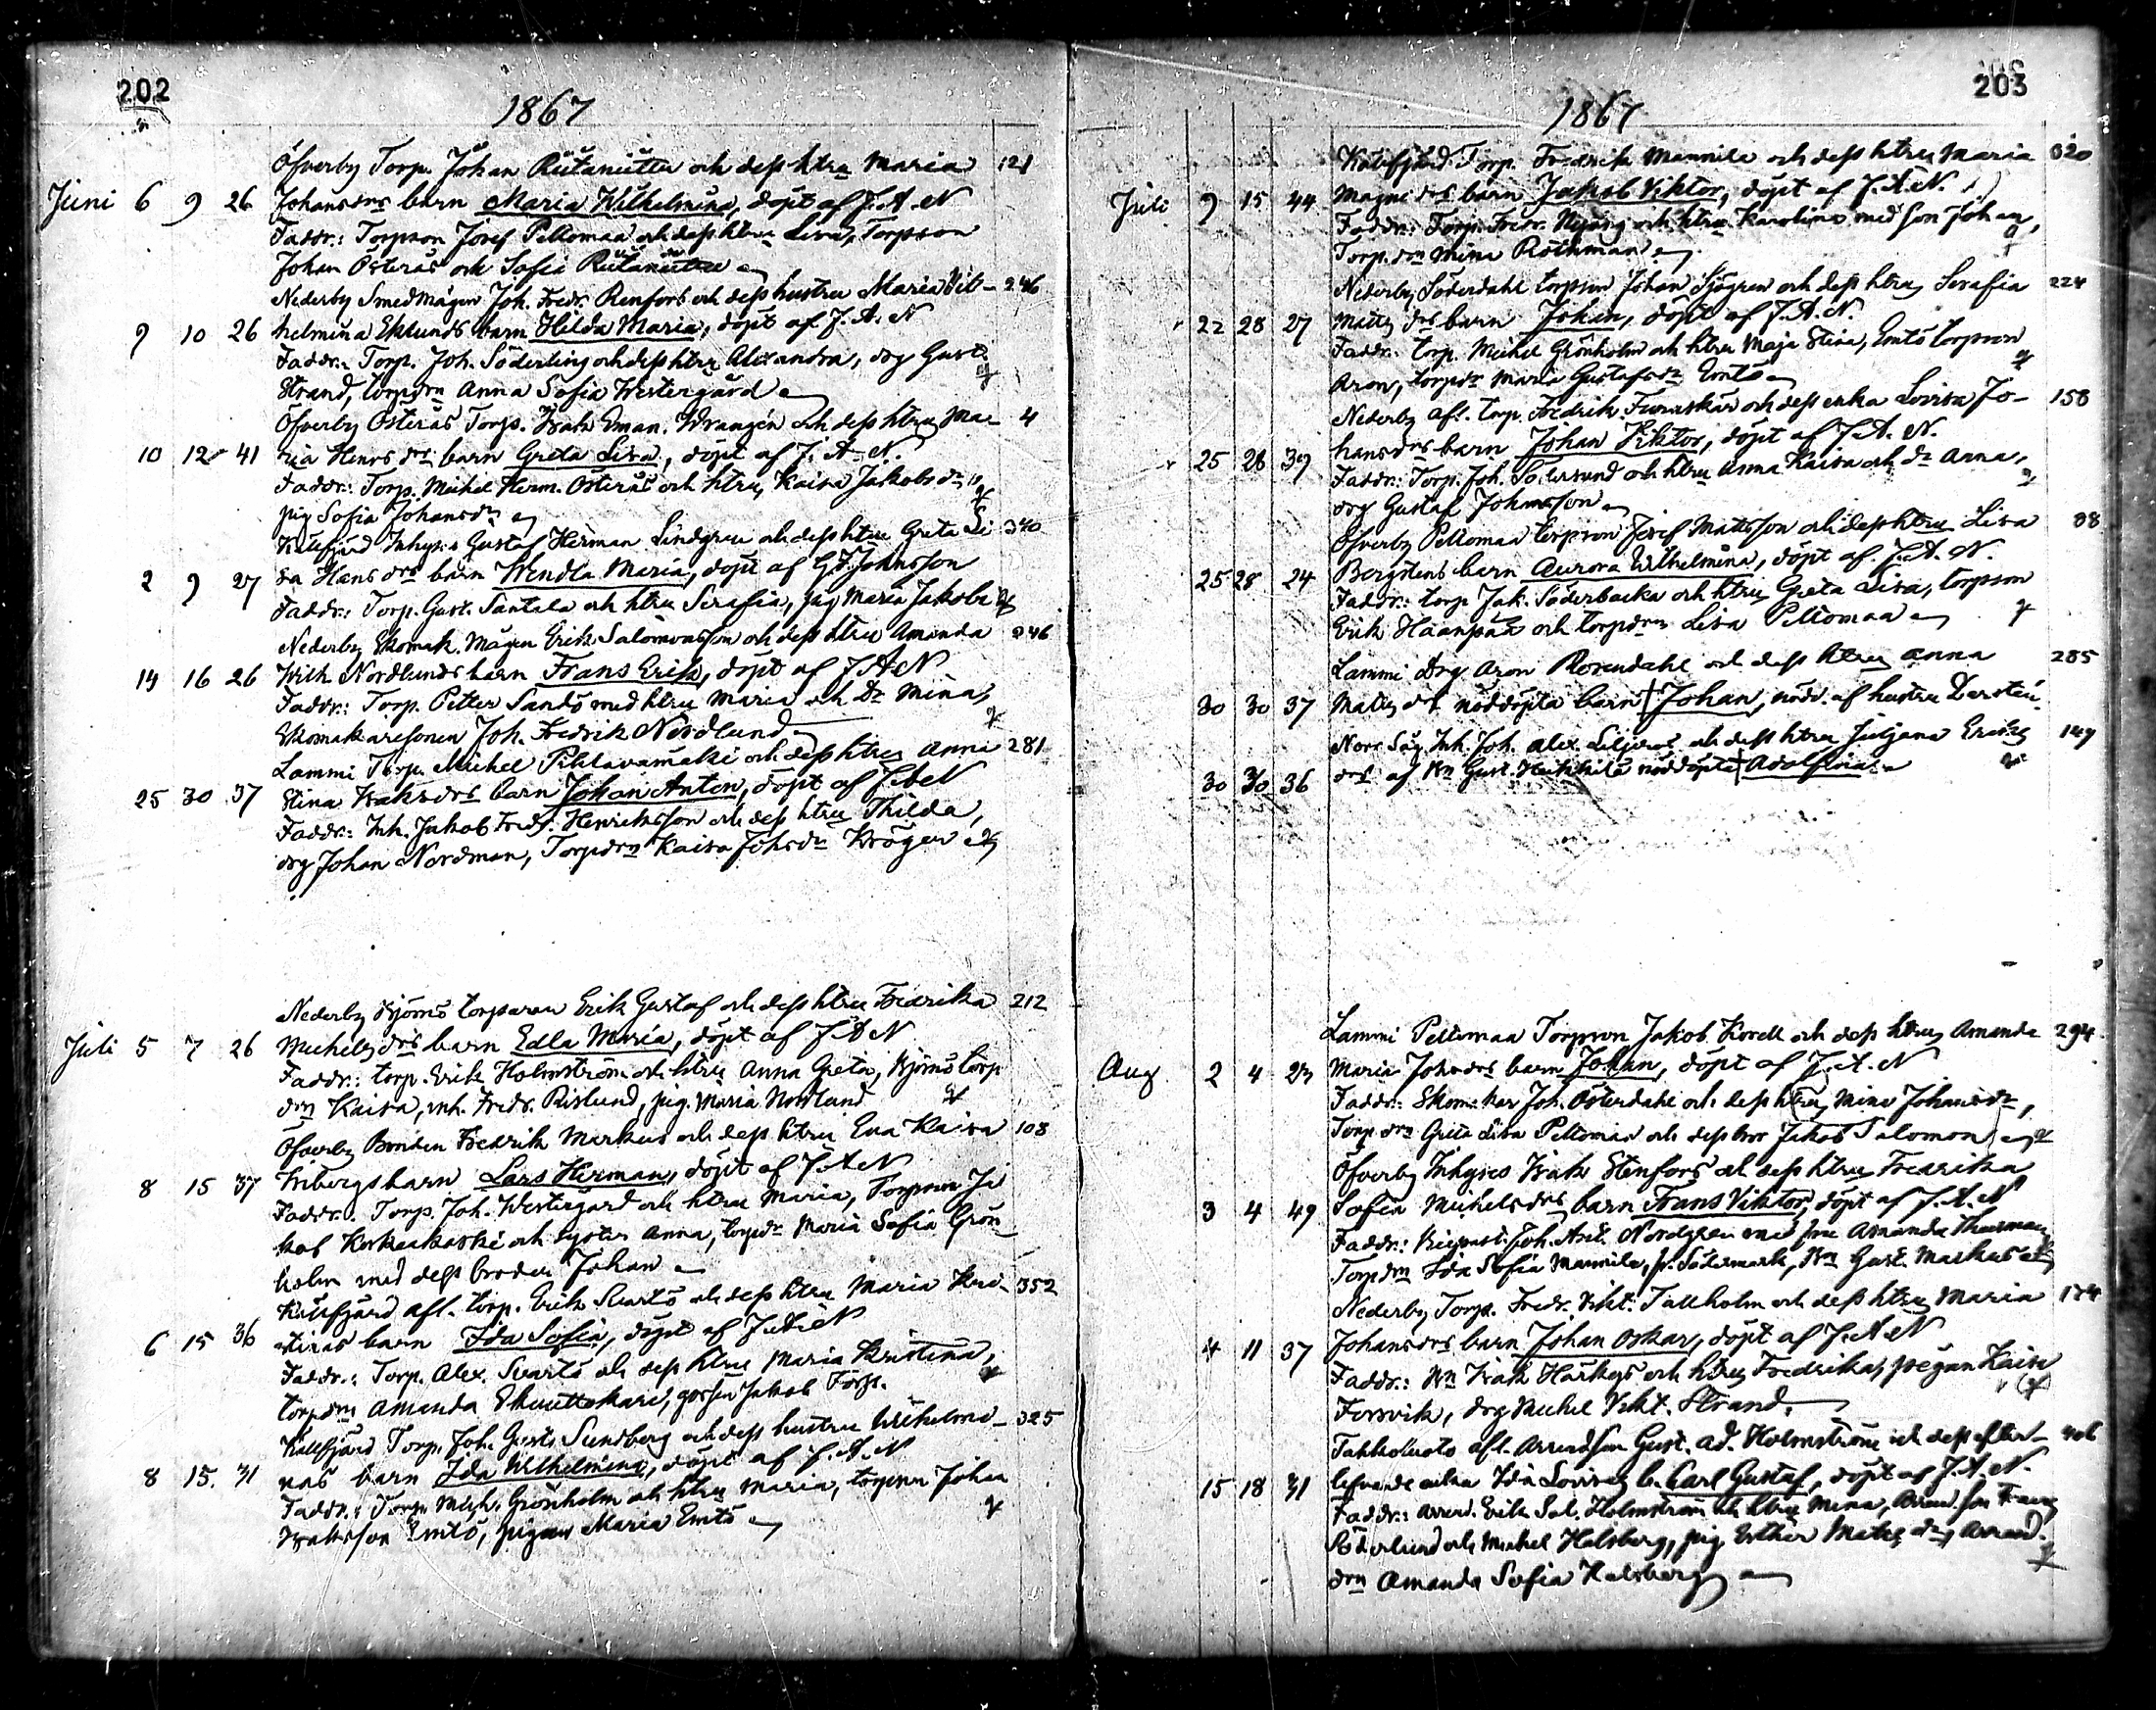 202
1867
Öfverby Torp. Johan Riitamutta och dess htru Maria 121
Juni 6 9 26 Johansdrs barn Maria Wilhelmina, döpt af J. A. N
Faddr.: Torpson Josef Peltomaa och dess htru Lisa, Torpson
Johan Österås och Sofia Riitamutta
Nederby Smed mågen Joh. Fredr. Renfors och dess hustru Maria Vil- 246
9 10 26 helmina Eklunds barn Hilda Maria, döpt af J. A. N
Faddr.: Torp. Joh. Söderling och dess htru Alexandra, drg Gust.
Strand, torpdrn Anna Sofia Westergård
Öfverby Österås Torp. Isak Eman. Wrangén och dess htru Ma- 4
10 12 41 ria Henrs drs barn Greta Lisa, döpt af J. A. N.
Faddr.: Torp. Michel Herm. Österås och htru Kaisa Jakobs dr,
pig Sofia Johansdr
Källfjärd Inhys. Gustaf Herman Lindgren och dess htru Greta Li 340
2 9 27 sa Hans drs barn Wendla Maria, döpt af G. Johnsson
Faddr.: Torp. Gust. Santala och htru Serafia, pig Maria Jakobs
Nederby Skomak. Mågen Erik Salomonsson och dess htru Amanda 246
14 16 26 Wilh. Nordlunds barn Frans Erik, döpt af J. A. N
Faddr.: Torp. Petter Sandö med htru Maria och Dr Mina,
Skomakaresonen Joh. Fredrik Nordlund
Lammi Torp. Michel Pihlavamäki och dess htru Anna 281
25 30 37 Stina Isaksdrs barn Johan Anton, döpt af J A N
Faddr.: Inh. Jakob Fredr. Henriksson och dess htru Thilda,
drg Johan Nordman, Torpdrn Kaisa Johsdr Kröger
Nederby Björnö torparen Erik Gustaf och dess htru Fredrika 212
Juli 5 7 26 Michels drs barn Edla Maria, döpt af J A N
Faddr.: torp. Erik Holmström och htru Anna Greta, Björnö torp
drn Kaisa, inh. Fredr. Rislund, pig. Maria Nordlund
Öfverby Bonden Fredrik Markus och dess htru Eva Kaisa 108
8 15 37 Fribergs barn Lars Herman, döpt af J A N
Faddr.: Torp. Joh. Westergård och htru Maria, Torpson Ja
kob Koskenkoski och syster Anna, torpdr Maria Sofia Grön-
holm med dess broder Johan
Källfjärd afl. torp. Erik Svartö och dess htru Maria Kri- 352
6 15 36 stinas barn Ida Sofia, döpt af J. A. N
Faddr.: Torp. Alex. Svartö och dess htru Maria Kristina,
torpdrn Amanda Skuuttokari, gossen Jakob Torp.
Källfjärd Torp. Joh. Gust. Sundberg och dess hustru Wilhelmi- 325
8 15. 31 nas barn Ida Wilhelmina, döpt af J. A. N
Faddr.: Torp. Mich. Grönholm och htru Maria, torpson Johan
Isaksson Emtö, pigan Maria Emtö
203
1867
Kållfjärd Torp. Fredrik Mannila och dess htru Maria 320
Juli 9 15 44 Magni drs barn Jakob Viktor, döpt af J. A. N.
Faddr.: Torp. Fredr. Nyberg och htru Karolina med son Johan,
Torp.drn Mina Rothman
Nederby Söderdahl torpson Johan Sjögren och dess htru Serafia 224
22 28 27 Matts drs barn Johan, döpt af J. A. N.
Faddr.: torp. Michel Grönholm och htru Maja Stina, Emtö torpson
Aron, torpdr Maria Gustafsdr Emtö
Nederby afl. torp. Fredrik Furuskär och dess enka Lovisa Jo- 158
25 28 39 hansdrs barn Johan Viktor, döpt af J. A. N.
Faddr.: Torp. Joh. Södersund och htru Anna Kaisa och dr Anna,
drg Gustaf Johansson
Öfverby Peltomaa torpson Josef Mattsson och dess htru Lisa 88
25 28 24 Bergstens barn Aurora Wilhelmina, döpt af J. A. N.
Faddr.: torp. Jak. Söderbacka och htru Greta Lisa, torpson
Erik Haanpää och torpdrn Lisa Peltomaa
Lammi Drg Aron Rosendahl och dess htru Anna 285
30 30 37 Matts drs nöddöpta barn Johan, nödd. af hustru
Norr Säg. Inh. Joh. Alex. Liljeroos och dess htru Juljana Eriks 149
30 30 36 drs af Bn Gust. Heikkilä nöddöpta Adolfina
Lammi Peltomaa Torpson Jakob Korell och dess htru Amanda 294
Aug 2 4 23 Maria Johs drs barn Johan, döpt af J. A. N
Faddr.: Skomakar Joh. Österdahl och dess htru Mina Johansdr,
Torp drn Greta Lisa Peltomaa och dess bror Jakob Salomon
Öfverby Inhyses Isak Stenfors och dess htru Fredrika
3 4 49 Sofia Michelsdrs barn Frans Viktor, döpt af J. A. N
Faddr.: Joh. Ant. Nordgren med fru Amanda
Torp drn Ida Sofia Mannila, Södermark, Bn Gust. Markus
Nederby Torp. Fredr. Vikt. Tallholm och dess htru Maria 174
4 11 37 Johansdrs barn Johan Oskar, döpt af J. A. N
Faddr.: Bn Isak Härkys och htru Fredrika, pigan Kaisa
Forsvik, drg Michel Vikt. Strand.
Takkoluoto afl. Arrendson Gust. Ad. Holmström och dess efter- 406
15 18 31 lefvande enka Ida Lovisas b. Carl Gustaf, döpt af J. A. N.
Faddr.: Arrend. Erik Sal. Holmström och htru Mina, Arrend. son Frans
Söderlund och Michel Halsberg, pig Esther Mats dr, Arrend.
drn Amanda Sofia Halsberg